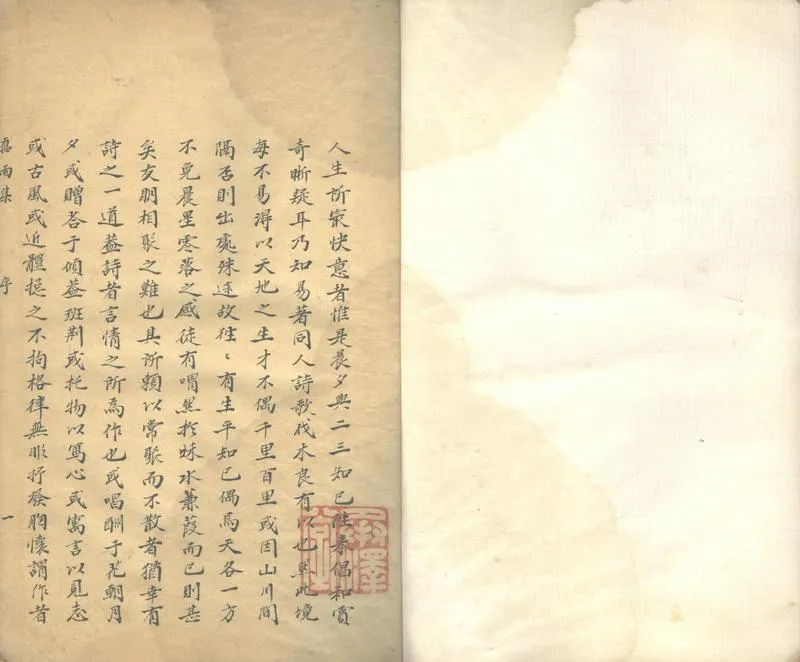 人生所最快意者惟是晨夕與二三知已往來倡和賞
奇晰疑耳乃知易著同人詩歌伐木良有以也然此境
每不易淂以天地之生才不偶千里百里或因山川間
隔否則出處殊途故徃〻有生平知已偶為天各一方
不免晨星零落之感徒有喟然於秋水蒹葭而已則甚
矣友朋相聚之難也其所頼以常聚而不散者猶幸有
詩之一道蓋詩者言情之所為作也或唱酬于花朝月
夕或贈答于傾蓋班荆或托物以寫心或寓言以見志
或古風或近體揔之不拘格律無非抒發胸懷謂作者
舊雨集
序
一